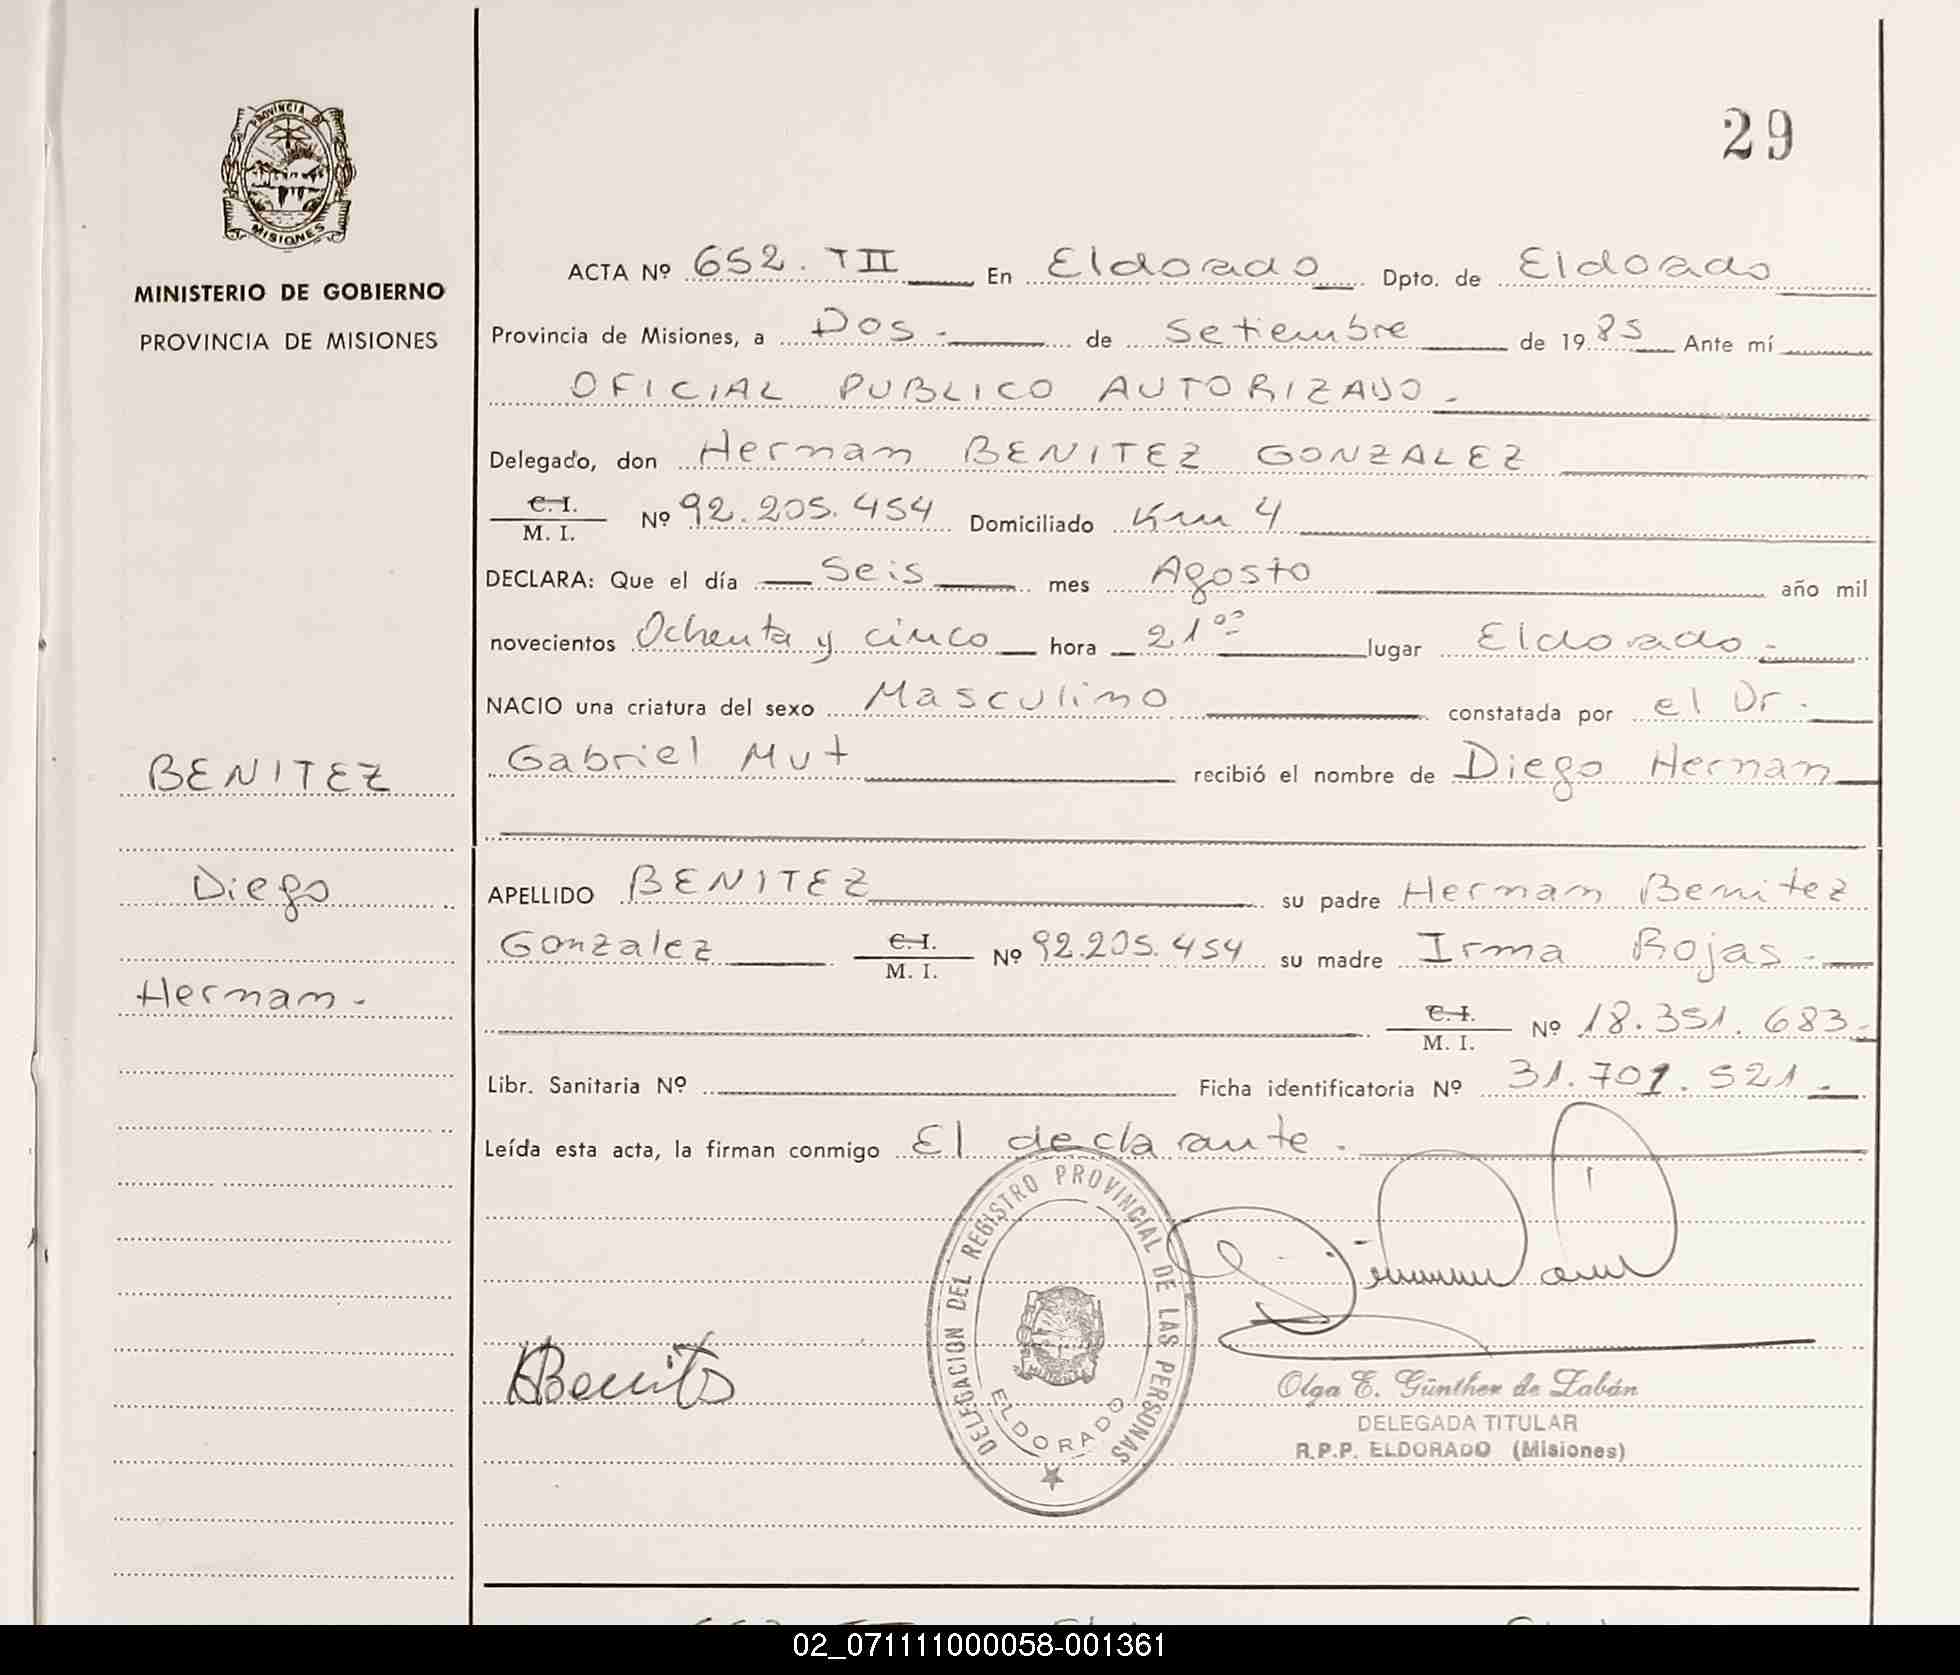 PROVINCIA DE
MISIONES
MINISTERIO DE GOBIERNO
PROVINCIA DE MISIONES
29
ACTA Nº 652. TII En Eldorado Dpto. de Eldorado
Provincia de Misiones, a Dos.- de Setiembre de 1985 Ante mí
OFICIAL PUBLICO AUTORIZADO.-
Delegado, don Hernan BENITEZ GONZALEZ
C.I.
M. I. Nº 92.205.454 Domiciliado Km 4
DECLARA: Que el día Seis mes Agosto año mil
novecientos Ochenta y cinco hora 21⁰⁰ lugar Eldorado.-
NACIO una criatura del sexo Masculino constatada por el Dr.
Gabriel Mut recibió el nombre de Diego Hernan
BENITEZ
Diego
Hernan.-
APELLIDO BENITEZ su padre Hernan Benitez
Gonzalez C.I. M. I. Nº 92.205.454 su madre Irma Rojas.-
C.I.
M. I. Nº 18.351.683.-
Libr. Sanitaria Nº Ficha identificatoria Nº 31.701.521.-
Leída esta acta, la firman conmigo El declarante.-
DELEGACION DEL REGISTRO PROVINCIAL DE LAS PERSONAS
ELDORADO
HBenitez
Olga E. Günther de Zabán
DELEGADA TITULAR
R.P.P. ELDORADO (Misiones)
02_071111000058-001361